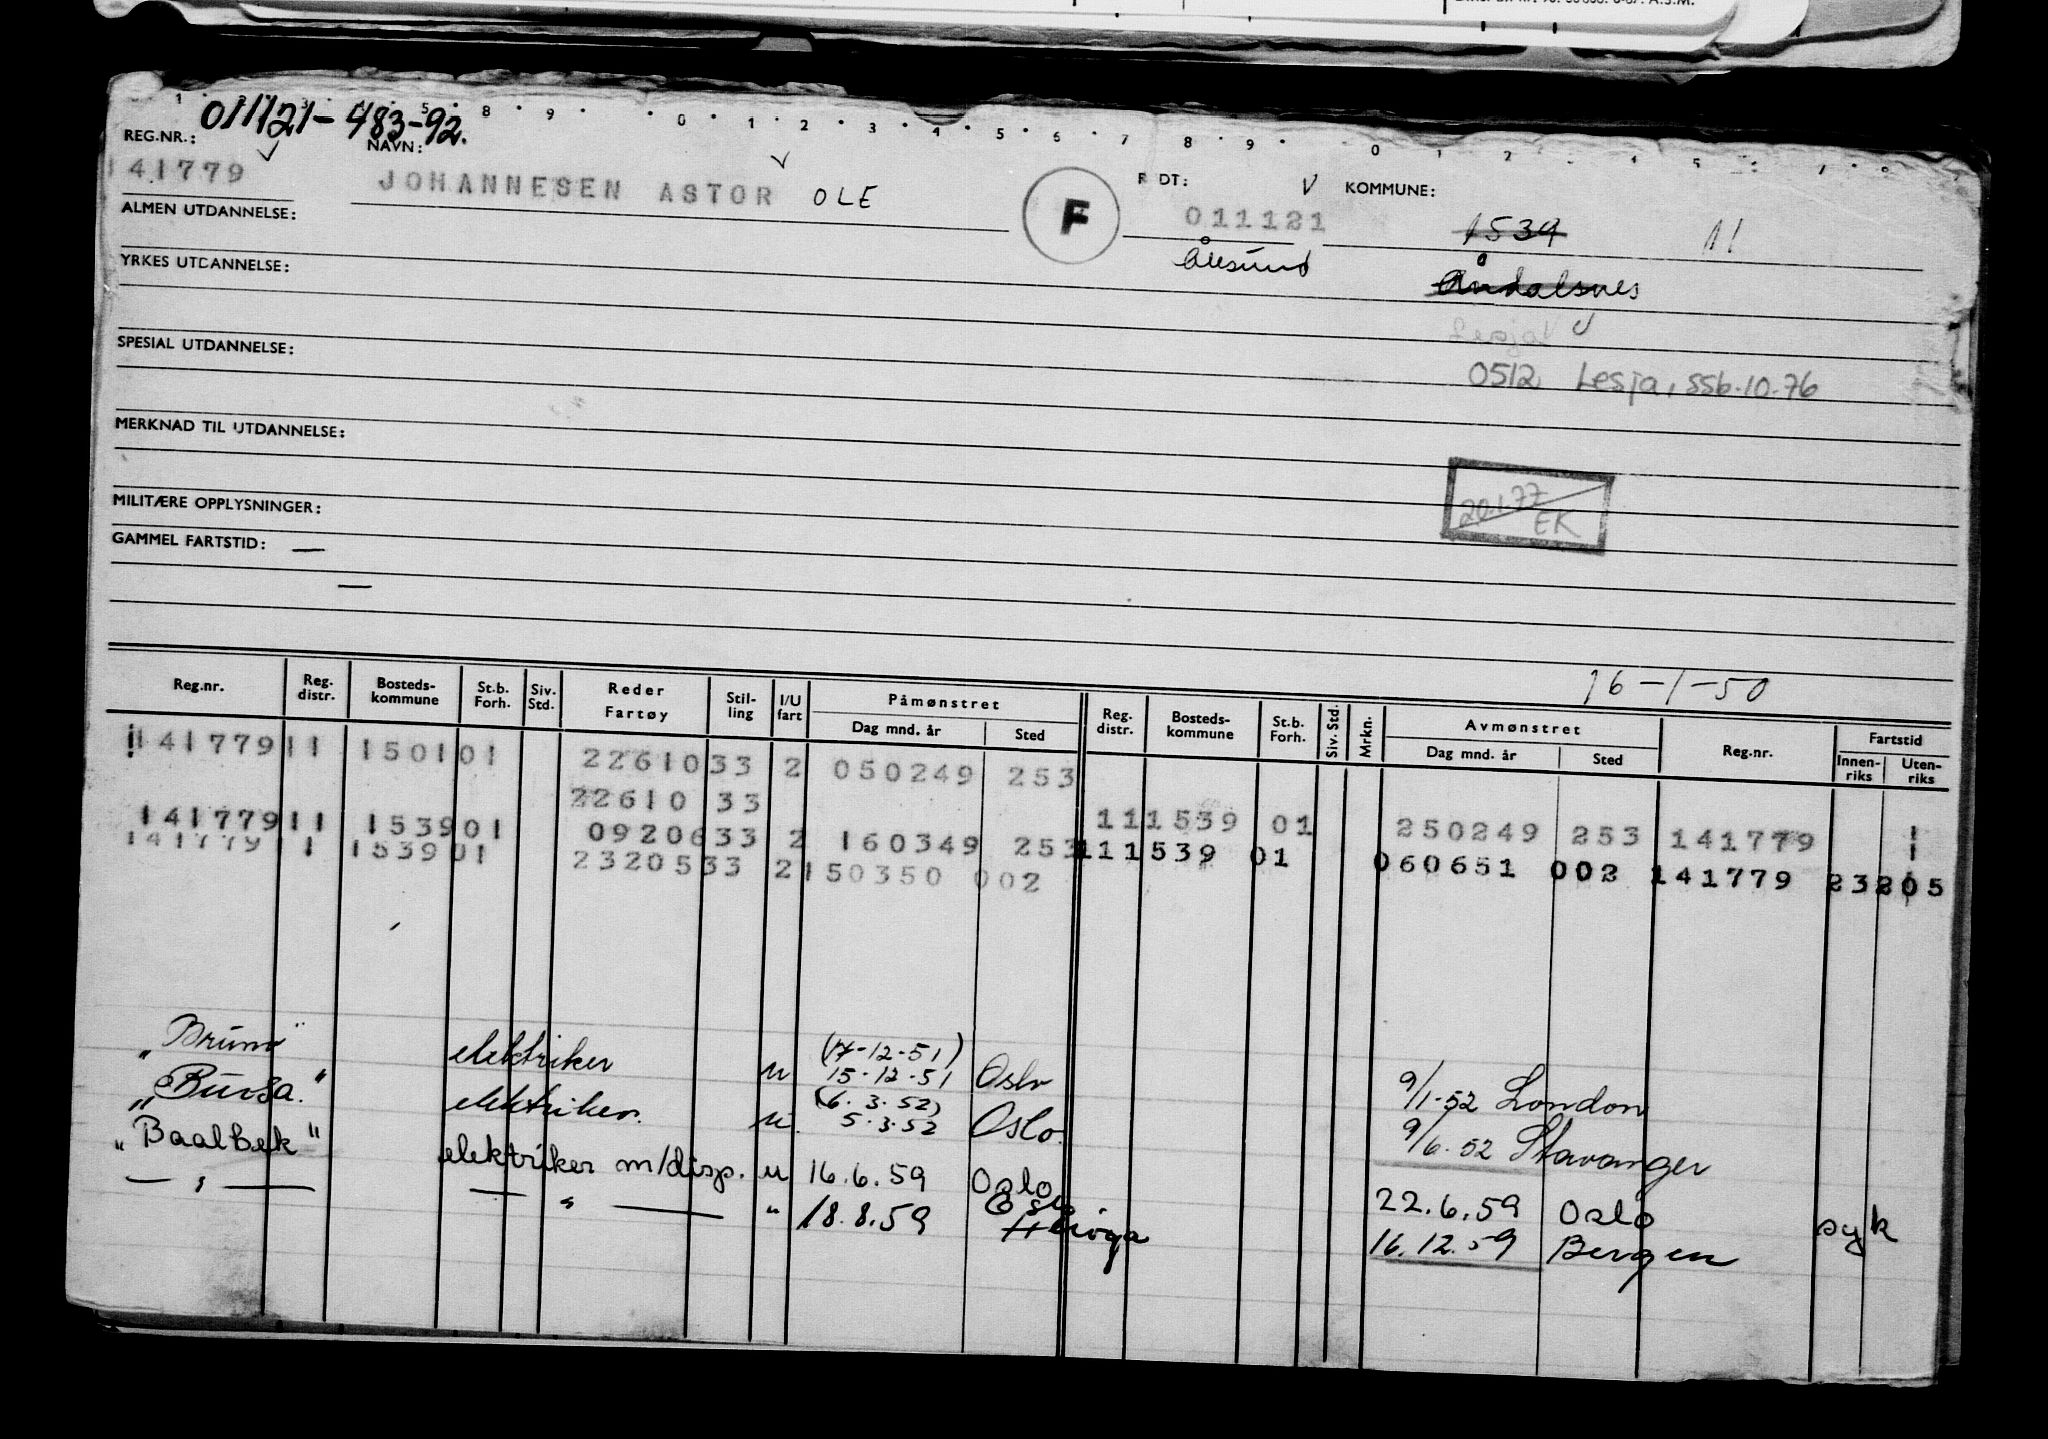 011121-483-92.
REG.NR.: NAVN: FØDT: KOMMUNE:
141779 JOHANNESEN ASTOR OLE F 011121 1539 11
ALMEN UTDANNELSE: Ålesund Åndalsnes
YRKES UTDANNELSE:
Lesja
SPESIAL UTDANNELSE: 0512 Lesja, ssb.10.76
MERKNAD TIL UTDANNELSE:
20.1.77 EK
MILITÆRE OPPLYSNINGER:
GAMMEL FARTSTID: —
—
16-1-50
Reg.nr. Reg. distr. Bosteds-kommune St.b. Forh. Siv. Std. Reder Fartøy Stil-ling I/U fart Påmønstret Dag mnd. år Sted Reg. distr. Bosteds-kommune St.b. Forh. Siv. Std. Mrkn. Avmønstret Dag mnd. år Sted Reg.nr. Fartstid Innen-riks Uten-riks
141779 11 1501 01 22610 33 2 050249 253
22610 33 11 1539 01 250249 253 141779 1
141779 11 1539 01 09206 33 2 160349 253 11 1539 01 060651 002 141779 23205
141779 11 1539 01 23205 33 2 150350 002
(17-12-51)
"Bruno" elektriker u 15-12-51 Oslo 9/1-52 London
(6.3.52)
"Bursa." elektriker. u. 5.3.52 Oslo. 9/6.52 Stavanger
"Baalbek" elektriker m/disp. u 16.6.59 Oslo 22.6.59 Oslo syk
— " — — " — " 18.8.59 Herøya 16.12.59 Bergen